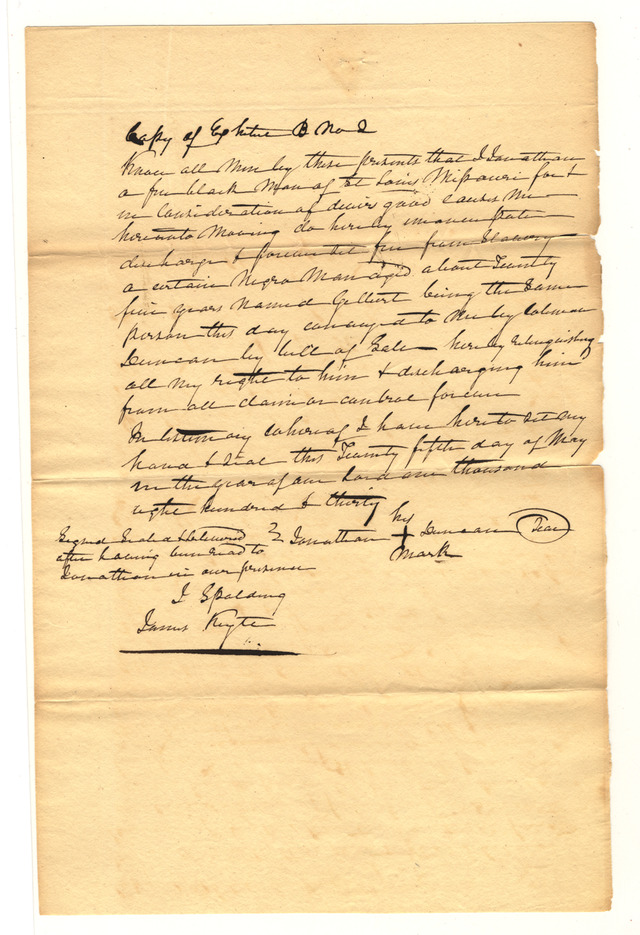 Copy of Exhibit B No 2
Know all Men by these presents that I Jonathan
a free black Man of St Louis Missouri for &
in Consideration of divers good causes Me
hereunto Moving do hereby emancipate
discharge & forever set free from Slavery
a certain Negro Man Aged about Twenty
five years Named Gilbert being the Same
person this day conveyed to Me by Coleman
Duncan by bill of Sale hereby relinquishing
all my right to him & discharging him
from all claim or control forever
In testimony whereof I have hereto set my
hand & seal this Twenty fifth day of May
in the year of our Lord one thousand
eight hundred & thirty
Signed Sealed & delivered Jonathan his + mark Duncan Seal
after having been read to
Jonathan in our presence
J Spalding
James Keyte